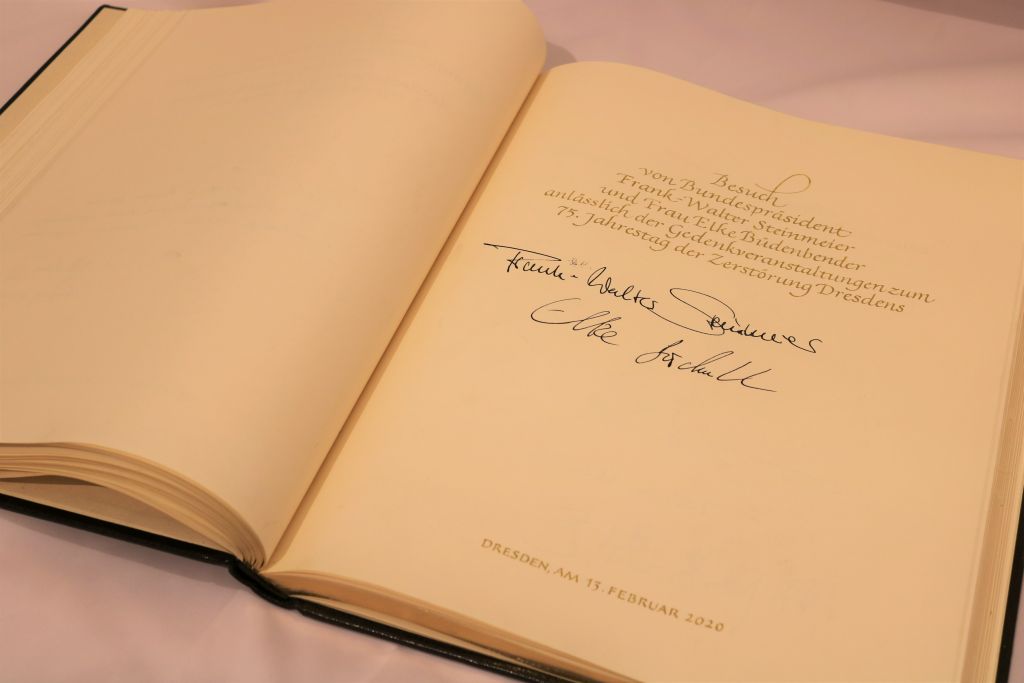 Besuch
von Bundespräsident
Frank-Walter Steinmeier
und Frau Elke Büdenbender
anlässlich der Gedenkveranstaltungen zum
75. Jahrestag der Zerstörung Dresdens
Frank-Walter Steinmeier
Elke
DRESDEN, AM 13. FEBRUAR 2020